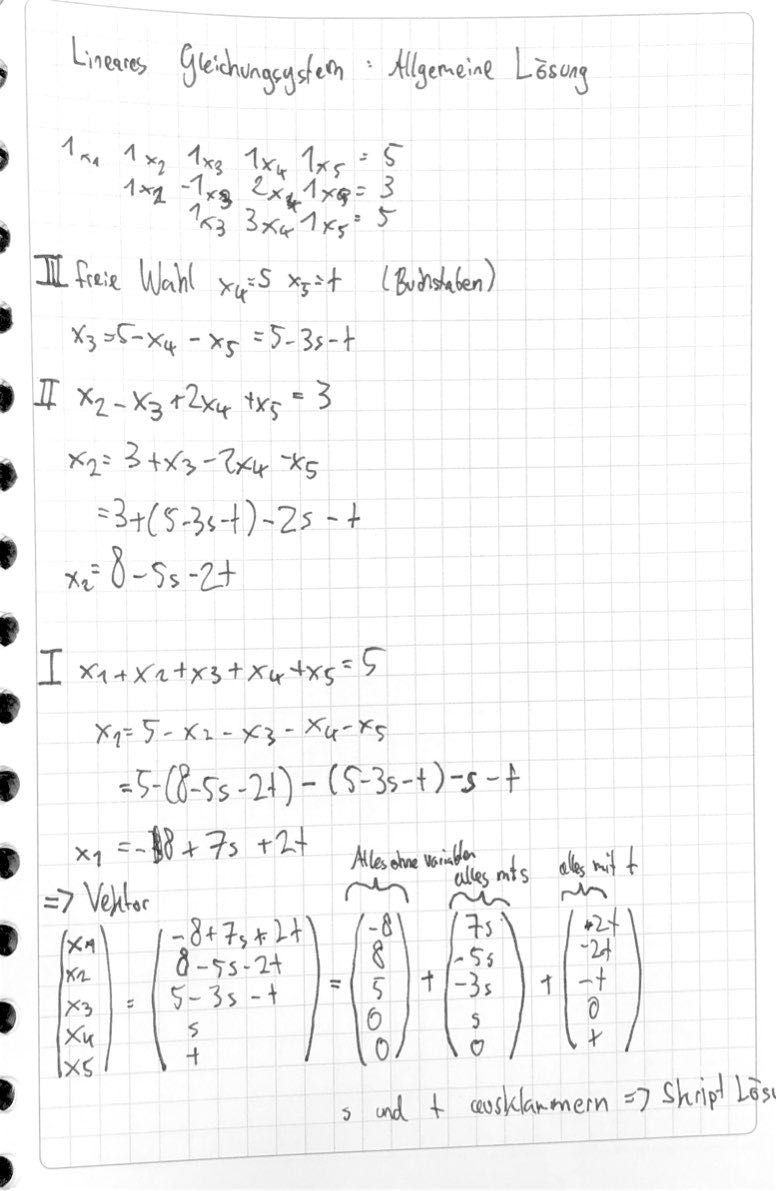 Lineares Gleichungsystem : Allgemeine Lösung
1x1 1x2 1x3 1x4 1x5 = 5
1x2 -1x3 2x4 1x5 = 3
1x3 3x4 1x5 = 5
III freie Wahl x4=s x5=t (Buchstaben)
x3=5-x4-x5=5-3s-t
II x2-x3+2x4+x5=3
x2=3+x3-2x4-x5
=3+(5-3s-t)-2s-t
x2=8-5s-2t
I x1+x2+x3+x4+x5=5
x1=5-x2-x3-x4-x5
=5-(8-5s-2t)-(5-3s-t)-s-t
x1=-8+7s+2t
Alles ohne variablen alles mit s alles mit t
=> Vektor
(x1) (-8+7s+2t) (-8) (7s) (+2t)
(x2) (8-5s-2t) (8) (-5s) (-2t)
(x3) = (5-3s-t) = (5) + (-3s) + (-t)
(x4) (s) (0) (s) (0)
(x5) (t) (0) (0) (t)
s und t ausklammern => Skript